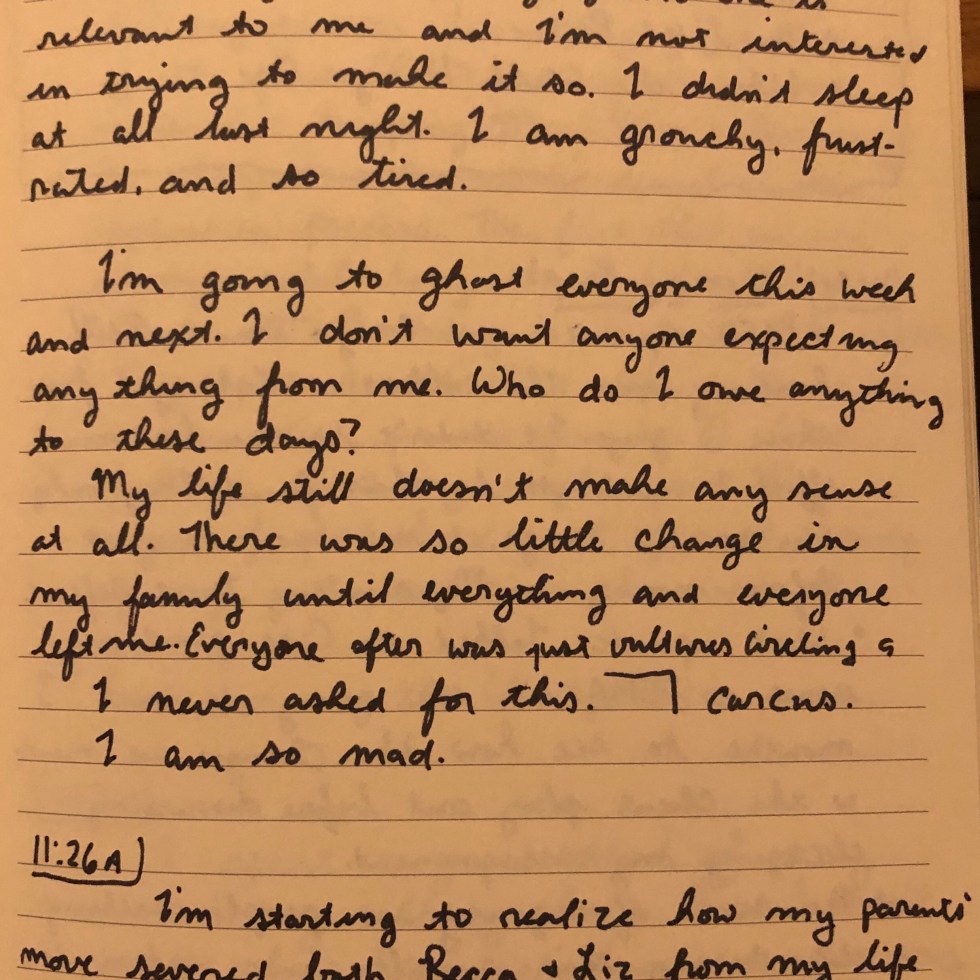 relevant to me and I'm not interested
in trying to make it so. I didn't sleep
at all last night. I am grouchy, frust-
rated, and so tired.
I'm going to ghost everyone this week
and next. I don't want anyone expecting
any thing from me. Who do I owe anything
to these days?
My life still doesn't make any sense
at all. There was so little change in
my family until everything and everyone
left me. Everyone after was just vultures circling a
I never asked for this. carcus.
I am so mad.
11:26A
I'm starting to realize how my parents'
move severed both Becca & Liz from my life